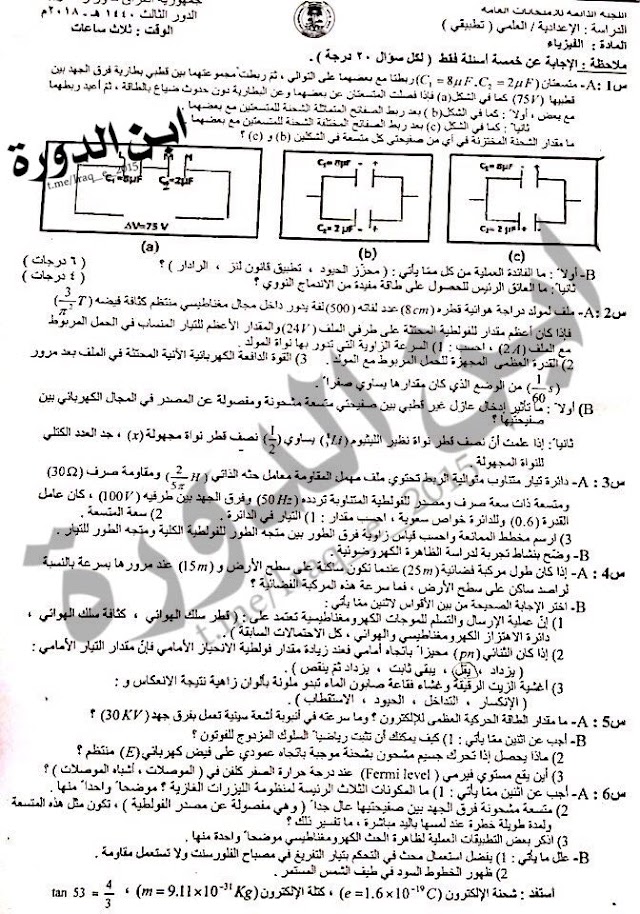 جمهورية العراق
اللجنة الدائمة للامتحانات العامة
الدور الثالث ١٤٤٠ هـ - ٢٠١٨م
الدراسة : الإعدادية / العلمي ( تطبيقي )
الوقت : ثلاث ساعات
المادة : الفيزياء
ملاحظة : الإجابة عن خمسة أسئلة فقط ( لكل سؤال ٢٠ درجة ) .
س1 : A- متسعتان (C₁ = 8μF , C₂ = 2μF) ربطتا مع بعضهما على التوالي ، ثم ربطت مجموعتهما بين قطبي بطارية فرق الجهد بين
قطبيها (75V) كما في الشكل(a) فإذا فصلت المتسعتان عن بعضهما وعن البطارية دون حدوث ضياع بالطاقة ، ثم أعيد ربطهما
مع بعض ، أولاً : كما في الشكل(b) بعد ربط الصفائح المتماثلة الشحنة للمتسعتين مع بعضهما
ثانياً : كما في الشكل (c) بعد ربط الصفائح المختلفة الشحنة للمتسعتين مع بعضهما
ما مقدار الشحنة المختزنة في أي من صفيحتي كل متسعة في الشكلين (b) و (c) ؟
ابن الدورة
t.me/Iraq_e_2015
C₁=8μF C₂=2μF
ΔV=75 V
C₁=8μF - +
C₂=2 μF - +
C₁=8μF - +
C₂= 2 μF + -
(a) (b) (c)
B- أولاً : ما الفائدة العملية من كل مما يأتي : ( محزز الحيود ، تطبيق قانون لنز ، الرادار ) ؟ ( ٦ درجات )
ثانياً : ما العائق الرئيس للحصول على طاقة مفيدة من الاندماج النووي ؟ ( ٤ درجات )
س2 : A- ملف لمولد دراجة هوائية قطره (8cm) عدد لفاته (500) لفة يدور داخل مجال مغناطيسي منتظم كثافة فيضه (3/π² T)
فإذا كان أعظم مقدار للفولطية المحتثة على طرفي الملف (24V) والمقدار الأعظم للتيار المنساب في الحمل المربوط
مع الملف (2A) ، احسب : 1) السرعة الزاوية التي تدور بها نواة المولد .
2) القدرة العظمى المجهزة للحمل المربوط مع المولد . 3) القوة الدافعة الكهربائية الآنية المحتثة في الملف بعد مرور
(1/60 s) من الوضع الذي كان مقدارها يساوي صفراً .
B) أولاً : ما تأثير إدخال عازل غير قطبي بين صفيحتي متسعة مشحونة ومفصولة عن المصدر في المجال الكهربائي بين
صفيحتيها ؟
ثانياً: إذا علمت أنّ نصف قطر نواة نظير الليثيوم (Li) يساوي (1/2) نصف قطر نواة مجهولة (x) ، جد العدد الكتلي
للنواة المجهولة .
س3 : A- دائرة تيار متناوب متوالية الربط تحتوي ملف مهمل المقاومة معامل حثه الذاتي (2/5π H) ومقاومة صرف (30Ω)
ومتسعة ذات سعة صرف ومصدر للفولطية المتناوبة تردده (50 Hz) وفرق الجهد بين طرفيه (100V) ، كان عامل
القدرة (0.6) وللدائرة خواص سعوية ، احسب مقدار : 1) التيار في الدائرة . 2) سعة المتسعة .
3) ارسم مخطط الممانعة واحسب قياس زاوية فرق الطور بين متجه الطور للفولطية الكلية ومتجه الطور للتيار .
B- وضّح بنشاط تجربة لدراسة الظاهرة الكهروضوئية .
س4 : A- إذا كان طول مركبة فضائية (25m) عندما تكون ساكنة على سطح الأرض و (15m) عند مرورها بسرعة بالنسبة
لراصد ساكن على سطح الأرض ، فما سرعة هذه المركبة الفضائية ؟
B- اختر الإجابة الصحيحة من بين الأقواس لاثنين مما يأتي :
1) إنّ عملية الإرسال والتسلم للموجات الكهرومغناطيسية تعتمد على : ( قطر سلك الهوائي ، كثافة سلك الهوائي ،
دائرة الاهتزاز الكهرومغناطيسي والهوائي ، كل الاحتمالات السابقة ) .
2) إذا كان الثنائي (pn) محيزاً باتجاه أمامي فعند زيادة مقدار فولطية الانحياز الأمامي فإنّ مقدار التيار الأمامي :
( يزداد ، يقل ، يبقى ثابت ، يزداد ثم ينقص ) .
3) أغشية الزيت الرقيقة وغشاء فقاعة صابون الماء تبدو ملونة بألوان زاهية نتيجة الانعكاس و :
( الإنكسار ، التداخل ، الحيود ، الاستقطاب ) .
س5 : A- ما مقدار الطاقة الحركية العظمى للإلكترون ؟ وما سرعته في أنبوبة أشعة سينية تعمل بفرق جهد (30 KV) ؟
B- أجب عن اثنين مما يأتي : 1) كيف يمكنك أن تثبت رياضياً السلوك المزدوج للفوتون ؟
2) ماذا يحصل إذا تحرك جسيم مشحون بشحنة موجبة باتجاه عمودي على فيض كهربائي (E) منتظم ؟
3) أين يقع مستوي فيرمي (Fermi level) عند درجة حرارة الصفر كلفن في ( الموصلات ، أشباه الموصلات ) ؟
س6 : A- أجب عن اثنين مما يأتي : 1) ما المكونات الثلاث الرئيسة لمنظومة الليزرات الغازية ؟ موضحاً واحداً منها .
2) متسعة مشحونة فرق الجهد بين صفيحتيها عال جداً ( وهي مفصولة عن مصدر الفولطية ) ، تكون مثل هذه المتسعة
ولمدة طويلة خطرة عند لمسها باليد مباشرة ، ما تفسير ذلك ؟
3) اذكر بعض التطبيقات العملية لظاهرة الحث الكهرومغناطيسي موضحاً واحدة منها .
B- علل ما يأتي : 1) يفضل استعمال محث في التحكم بتيار التفريغ في مصباح الفلورسنت ولا تستعمل مقاومة .
2) ظهور الخطوط السود في طيف الشمس المستمر .
استفد : شحنة الإلكترون (e = 1.6×10⁻¹⁹ C) ، كتلة الإلكترون (m = 9.11×10⁻³¹ Kg) ، tan 53 = 4/3
ابن الدورة
t.me/Iraq_e_2015